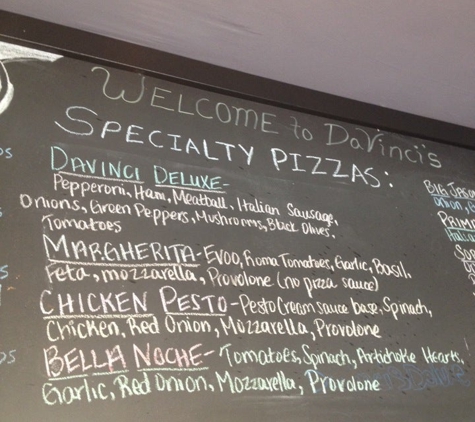 WELCOME to DaVinci's
SPECIALTY PIZZAS:
DAVINCI DELUXE-
Pepperoni, Ham, Meatball, Italian Sausage,
Onions, Green Peppers, Mushrooms, Black Olives,
Tomatoes
MARGHERITA-Evoo, Roma Tomatoes, Garlic, Basil,
Feta, mozzarella, Provolone (no pizza sauce)
CHICKEN PESTO-Pesto Cream sauce base, Spinach,
Chicken, Red Onion, Mozzarella, Provolone
BELLA NOCHE-Tomatoes, Spinach, Artichoke Hearts,
Garlic, Red Onion, Mozzarella, Provolone